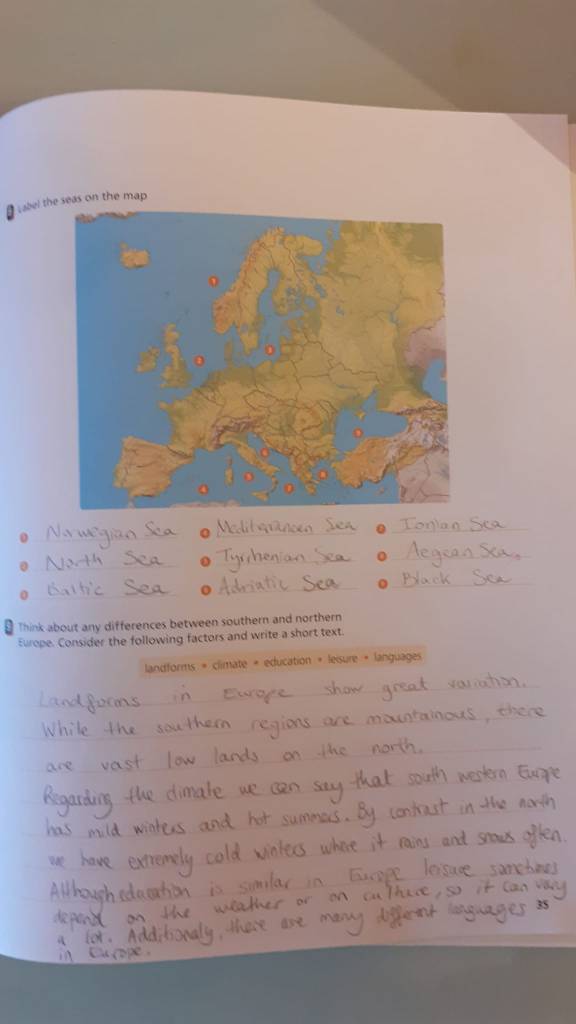 Label the seas on the map
1
2
3
4
5
6
7
8
9
1 Norwegian Sea
4 Mediterranean Sea
7 Ionian Sea
2 North Sea
5 Tyrrhenian Sea
8 Aegean Sea
3 Baltic Sea
6 Adriatic Sea
9 Black Sea
Think about any differences between southern and northern
Europe. Consider the following factors and write a short text.
landforms • climate • education • leisure • languages
Landforms in Europe show great variation.
While the southern regions are mountainous, there
are vast low lands on the north.
Regarding the climate we can say that south western Europe
has mild winters and hot summers. By contrast in the north
we have extremely cold winters where it rains and snows often.
Although education is similar in Europe leisure sometimes
depend on the weather or on culture, so it can vary
a lot. Additionaly, there are many different languages
in Europe.
35